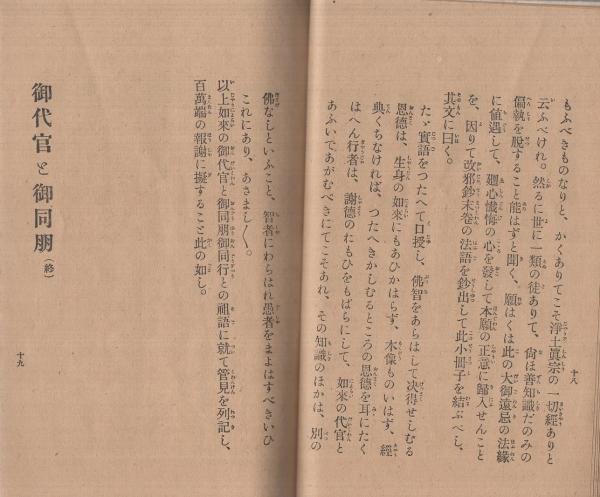 もふべきものなりと、かくありてこそ淨土眞宗の一切經ありと
云ふべけれ。然るに世に一類の徒ありて、尙ほ善知識だのみの
偏執を脫すること能はずと聞く、願はくは此の大御遠忌の法緣
に値遇して、廻心懺悔の心を發して本願の正意に歸入せんこと
を、因りて改邪鈔末卷の法語を鈔出して此小冊子を結ぶべし、
其文に曰く。
たゞ實語をつたへて口授し、佛智をあらはして決得せしむる
恩德は、生身の如來にもあひかはらず、木像ものいはず、經
典くちなければ、つたへきかしむるところの恩德を耳にたく
はへん行者は、謝德のおもひをもはらにして、如來の代官と
あふいであがむべきにてこそあれ、その知識のほかは、別の
十八
佛なしといふこと、智者にわらはれ愚者をまよはすべきいひ
これにあり、あさまし〱。
以上如來の御代官と御同朋御同行との祖語に就て管見を列記し、
百萬端の報謝に擬すること此の如し。
御代官と御同朋（終）
十九